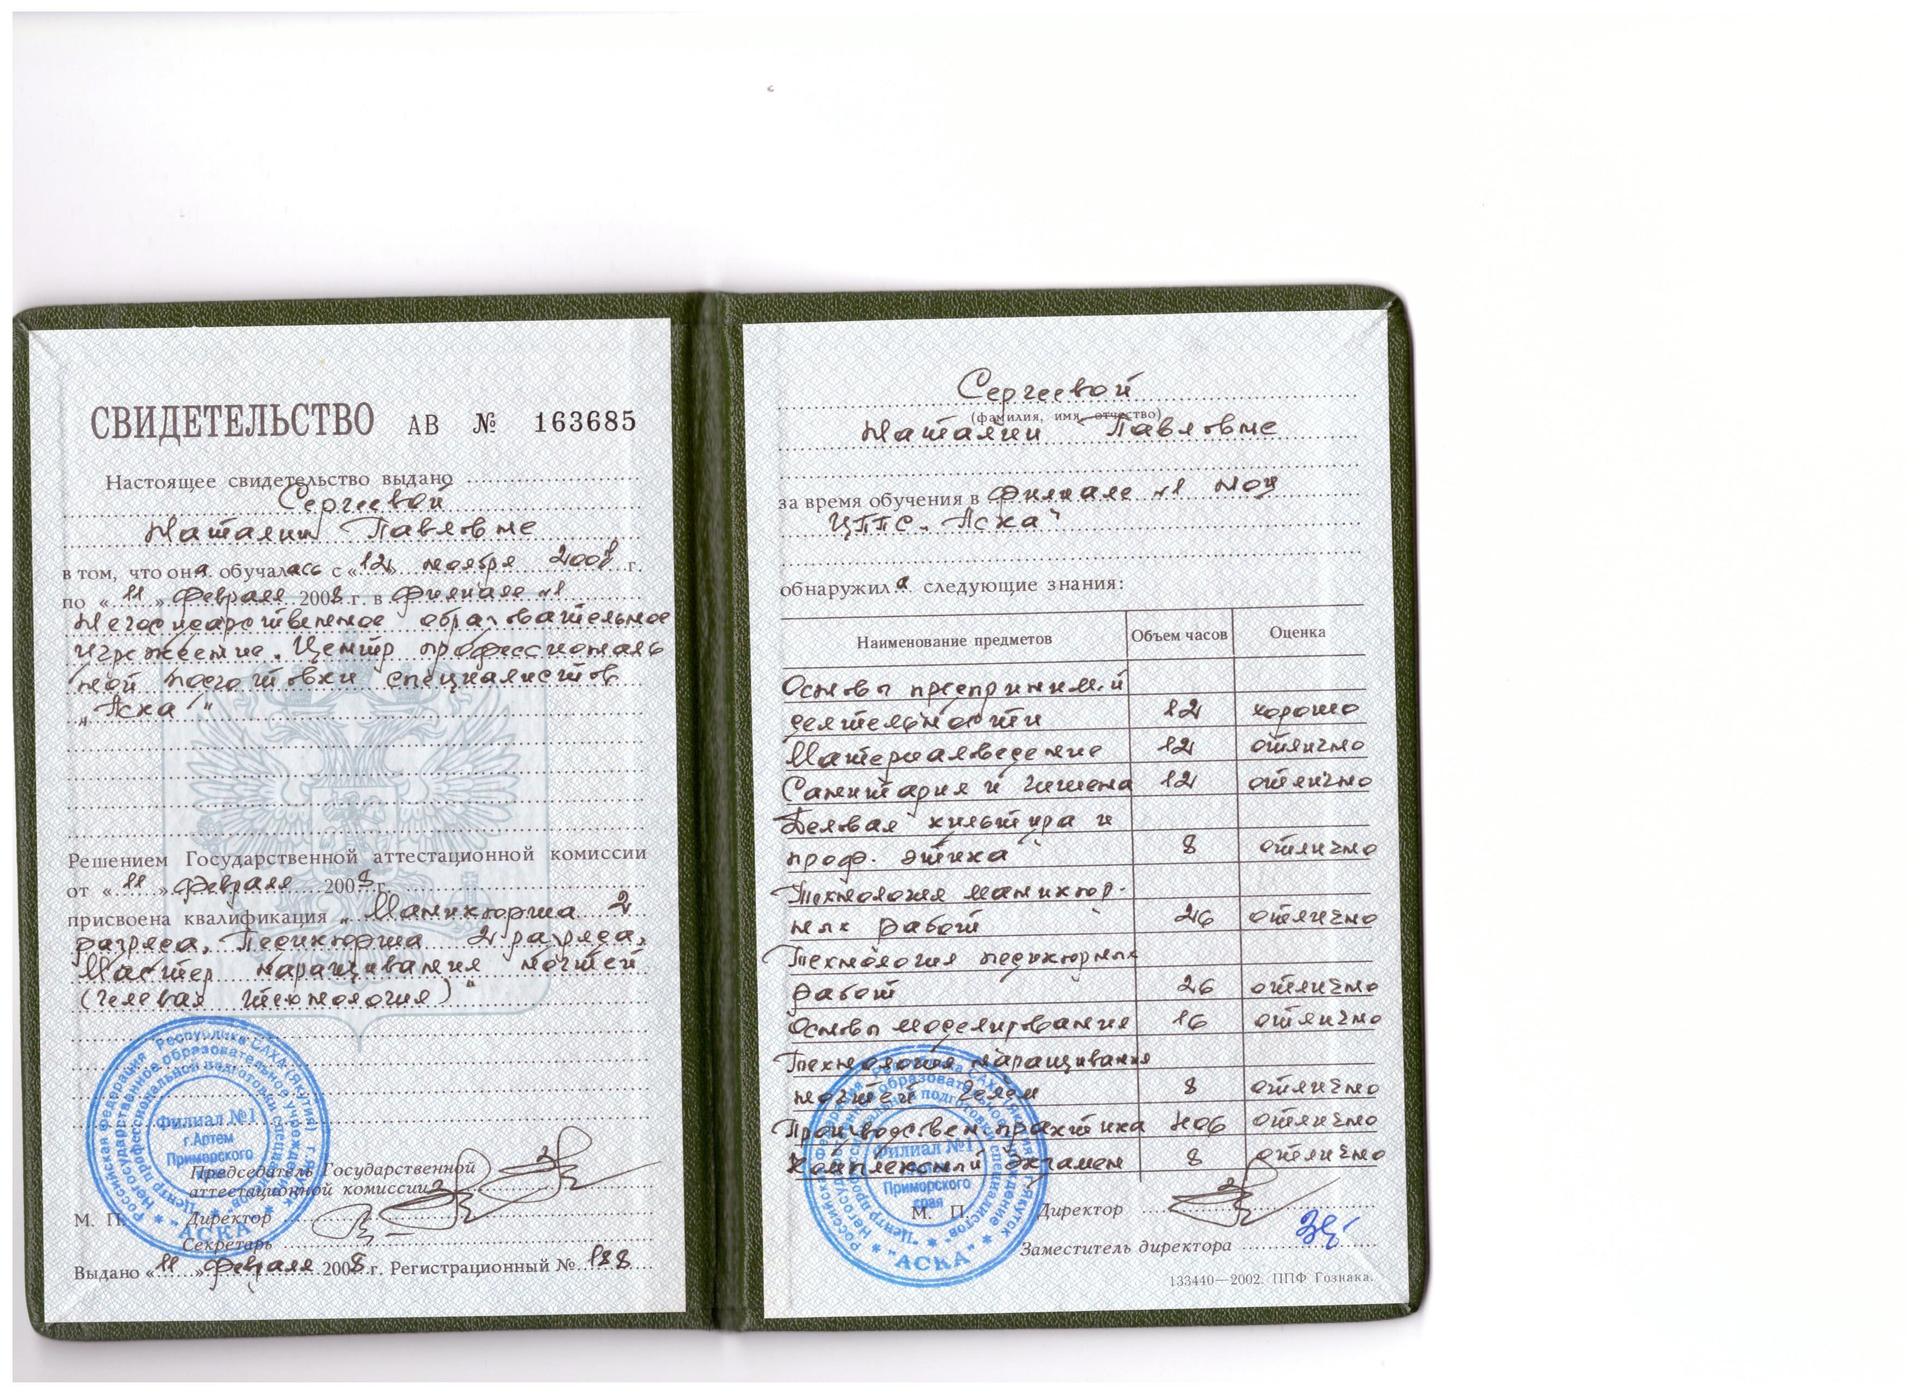 СВИДЕТЕЛЬСТВО АВ № 163685
Настоящее свидетельство выдано
Сергеевой
Наталии Павловне
в том, что она обучалась с «12» ноября г.
по «11» февраля 2008 г. в филиале №1
Негосударственное образовательное
учреждение "Центр профессиональ
ной подготовки специалистов
"Аска"
Решением Государственной аттестационной комиссии
от «11» февраля 2008 г.
присвоена квалификация "Маникюрша 2
разряда, Педикюрша 2 разряда,
Мастер наращивания ногтей
(гелевая технология)"
Председатель Государственной
аттестационной комиссии
М. П. Директор
Секретарь
Выдано «11» февраля 2008 г. Регистрационный № 188
Российская Федерация Республика САХА (Якутия) г. Якутск
Негосударственное образовательное учреждение
"Центр профессиональной подготовки специалистов"
"АСКА"
Филиал №1
г.Артем
Приморского
края
Сергеевой
(фамилия, имя, отчество)
Наталии Павловне
за время обучения в филиале №1 НОУ
ЦППС "Аска"
обнаружила следующие знания:
Наименование предметов Объем часов Оценка
Основы предприним.й
деятельности 12 хорошо
Материаловедение 12 отлично
Санитария и гигиена 12 отлично
Деловая культура и
проф. этика 8 отлично
Технология маникюр-
ных работ 26 отлично
Технология педикюрных
работ 26 отлично
Основы моделирования 16 отлично
Технология наращивания
ногтей гелем 8 отлично
Производствен. практика 406 отлично
Комплексный экзамен 8 отлично
М. П. Директор
Заместитель директора
133440—2002. ППФ Гознака.
Российская Федерация Республика САХА (Якутия) г. Якутск
Негосударственное образовательное учреждение
"Центр профессиональной подготовки специалистов"
"АСКА"
Филиал №1
Приморского
края